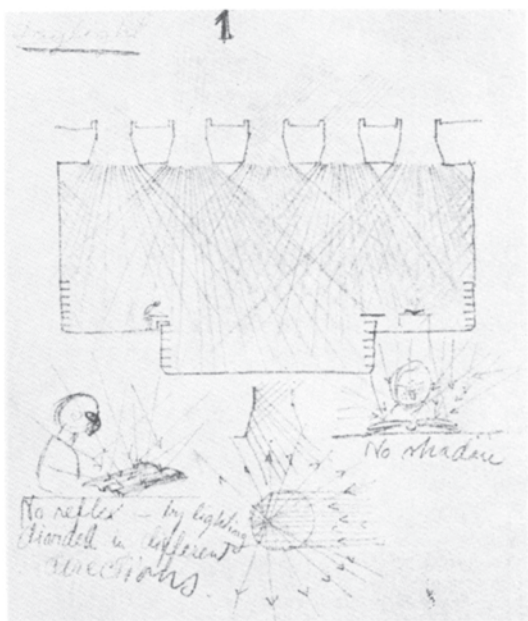 1
Daylight
No shadow
No reflex – by lighting
divided in different
directions.